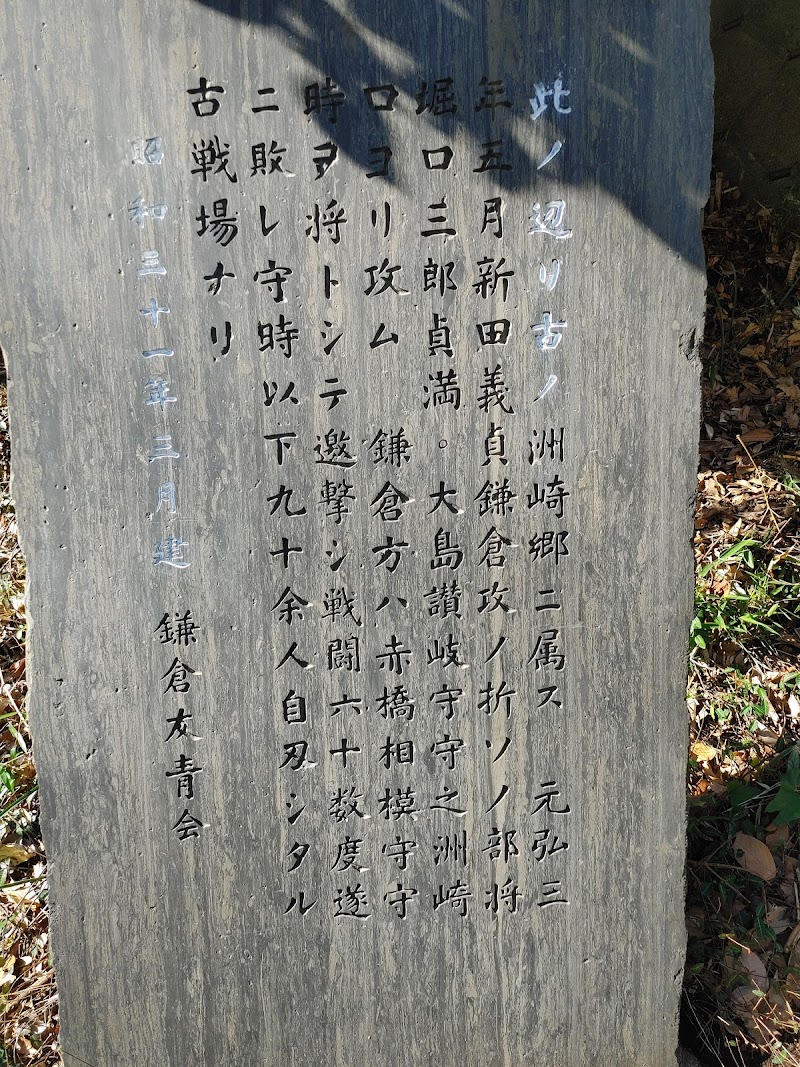 此ノ辺リ古ノ洲崎郷ニ属ス 元弘三
年五月新田義貞鎌倉攻ノ折ソノ部将
堀口三郎貞満。大島讃岐守守之洲崎
口ヨリ攻ム 鎌倉方ハ赤橋相模守守
時ヲ将トシテ邀撃シ戦闘六十数度遂
ニ敗レ守時以下九十余人自刄シタル
古戦場ナリ
昭和三十一年三月建 鎌倉友青会